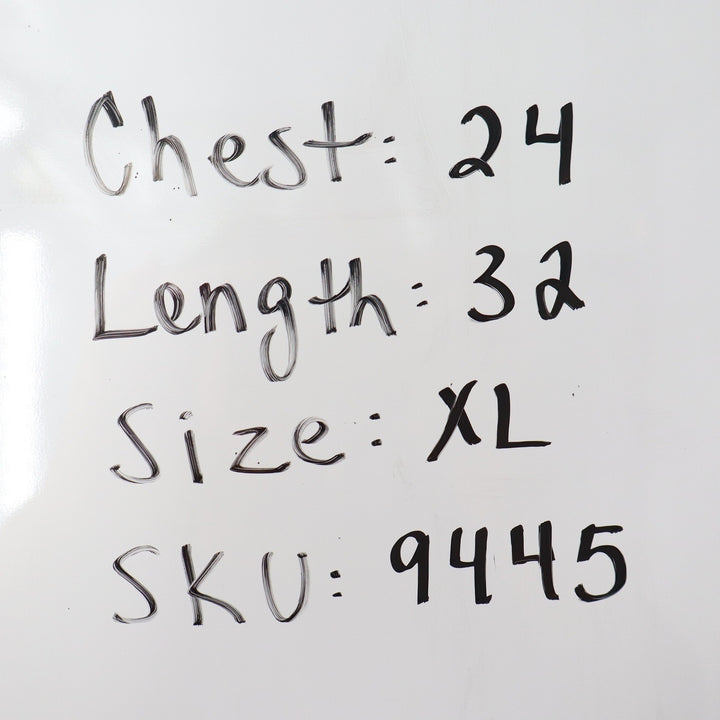 Chest: 24
Length: 32
Size: XL
SKU: 9445